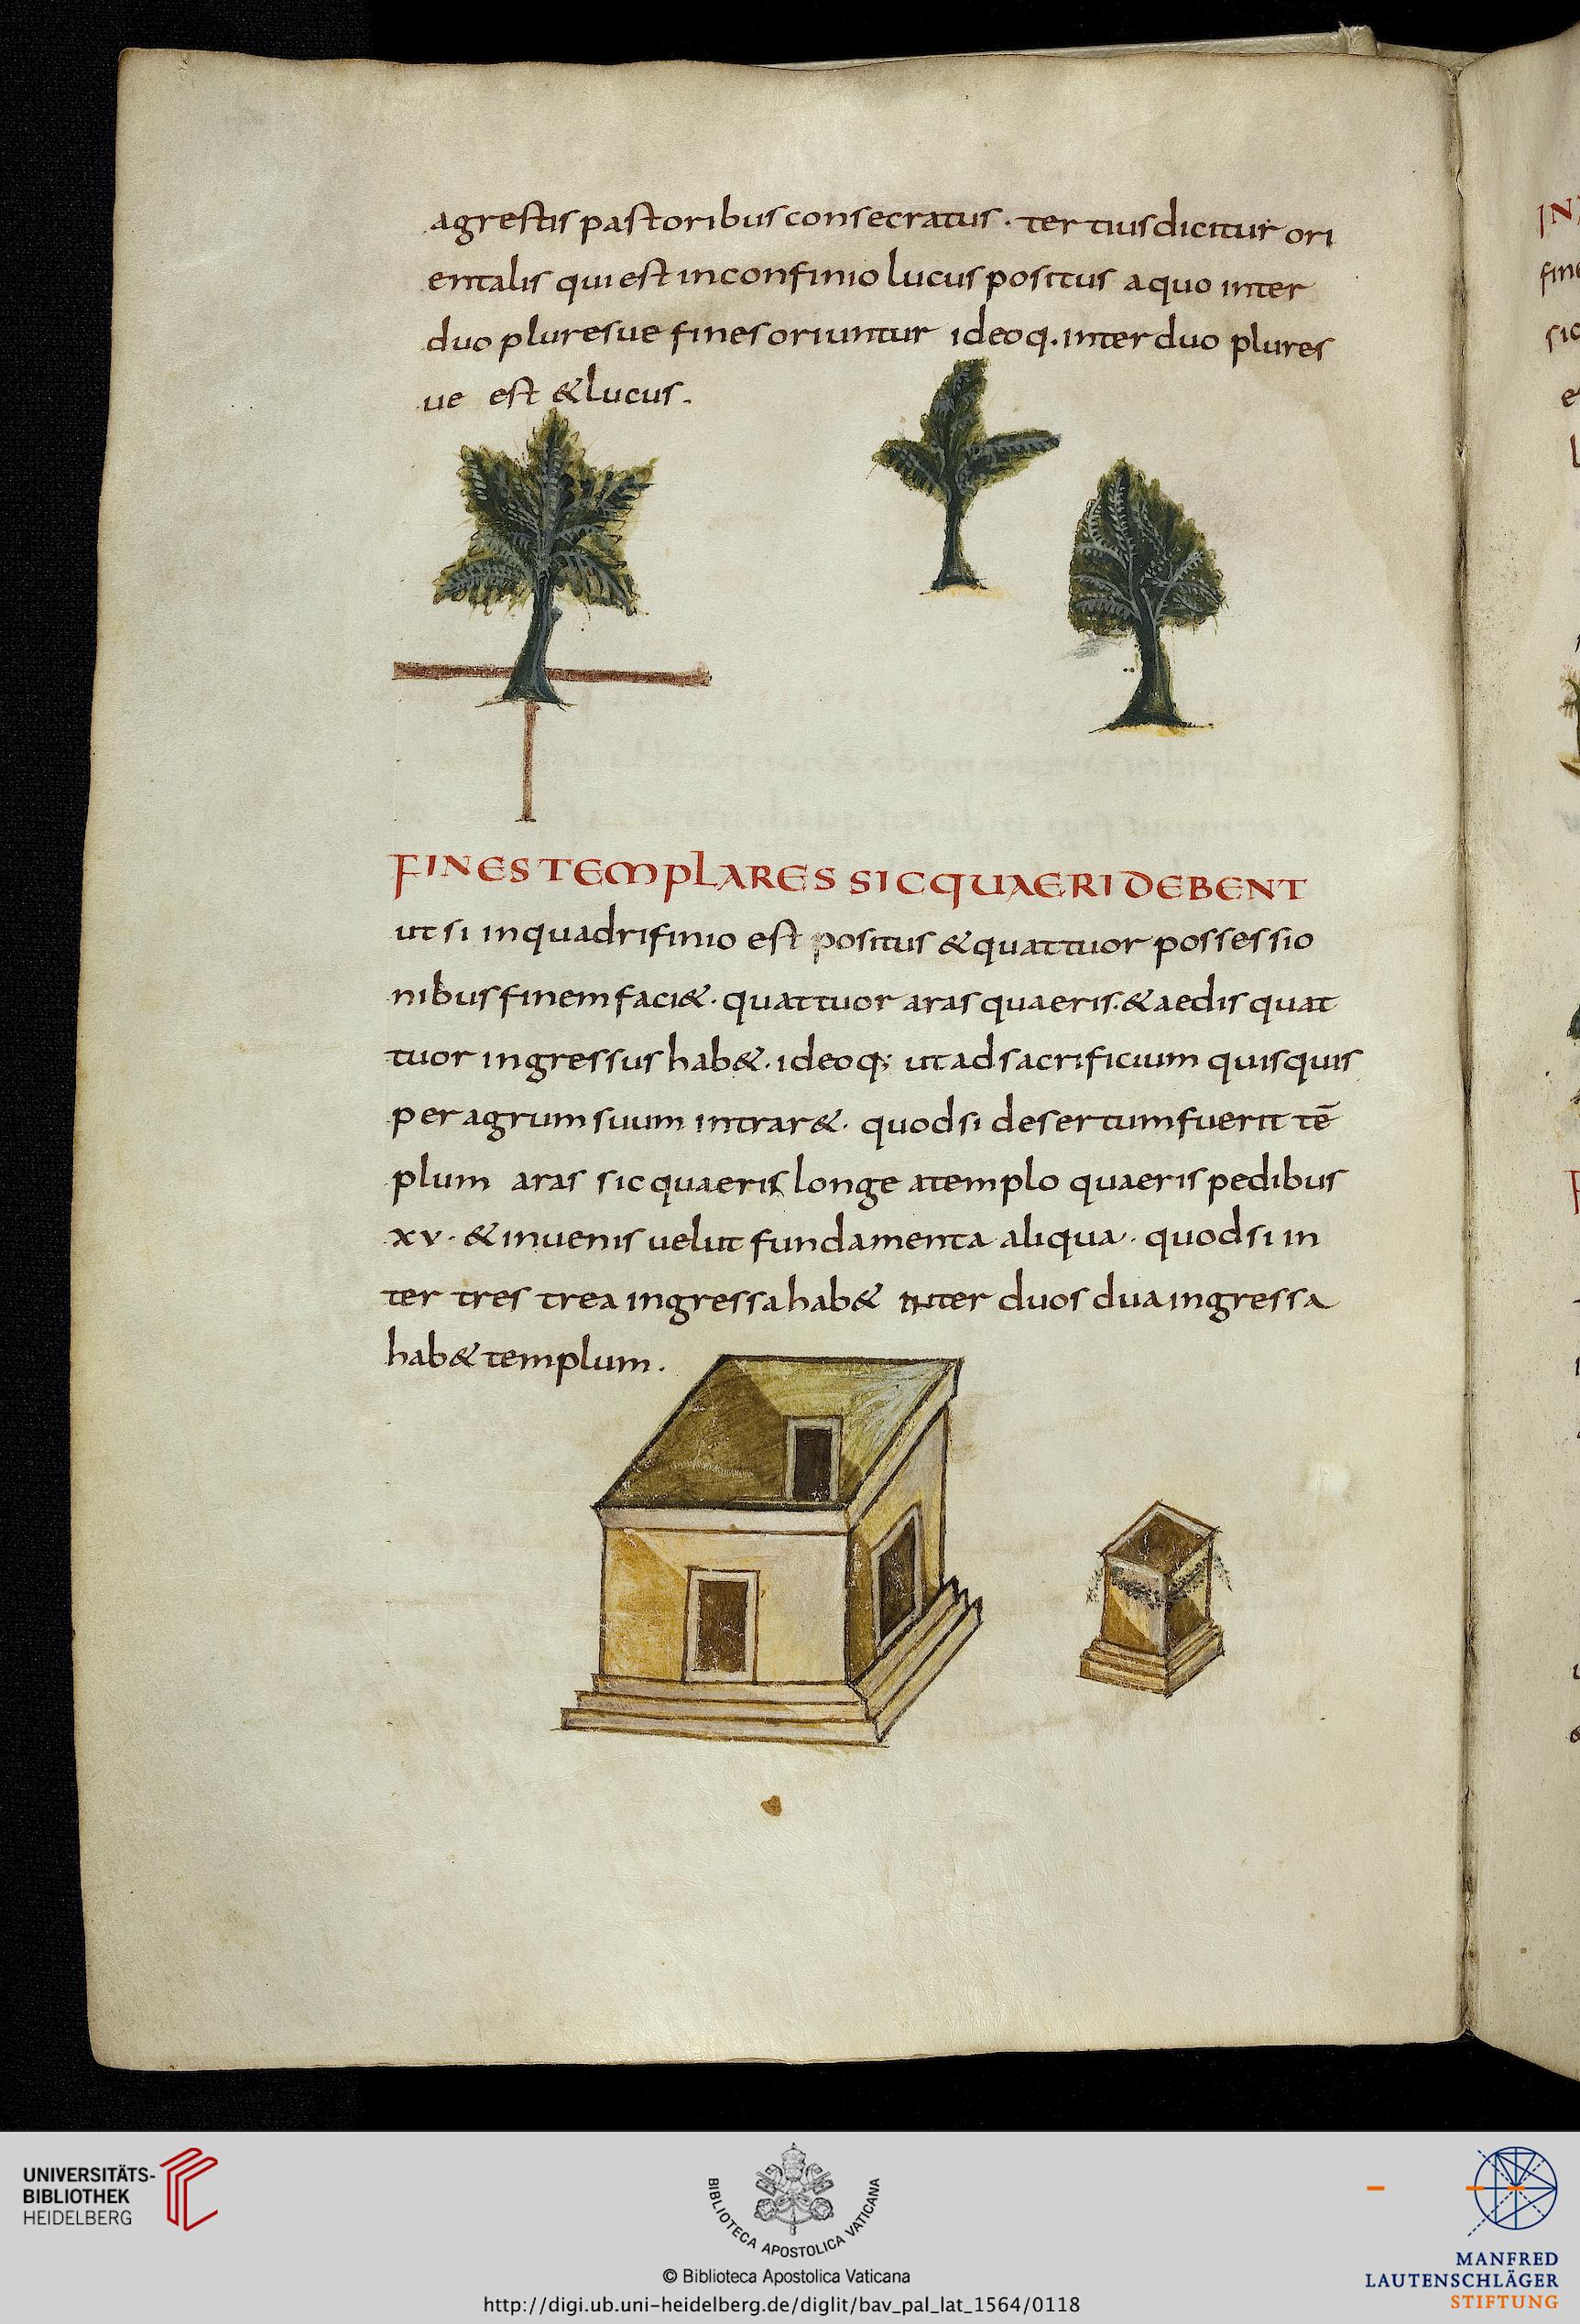 agrestis pastoribus consecratus · tertius dicitur ori
entalis qui est in confinio lucus positus a quo inter
duo pluresue fines oriuntur ideoq. inter duo plures
ue est & lucus.
FINES TEMPLARES SIC QUAERI DEBENT
ut si in quadrifinio est positus & quattuor possessio
nibus finem faci& · quattuor aras quaeris · & aedis quat
tuor ingressus hab& · ideoq; ut ad sacrificium quisquis
per agrum suum intrar& · quod si desertum fuerit tē
plum aras sic quaeris longe a templo quaeris pedibus
xv · & inuenis uelut fundamenta aliqua · quod si in
ter tres trea ingressa hab& inter duos dua ingressa
hab& templum.
UNIVERSITÄTS-
BIBLIOTHEK
HEIDELBERG
BIBLIOTECA APOSTOLICA VATICANA
© Biblioteca Apostolica Vaticana
http://digi.ub.uni-heidelberg.de/diglit/bav_pal_lat_1564/0118
MANFRED
LAUTENSCHLÄGER
STIFTUNG